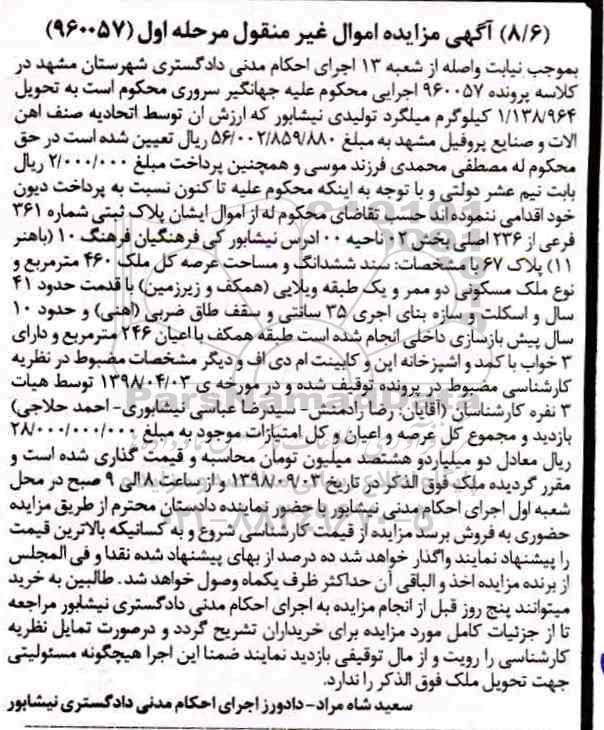 (۸/۶) آگهی مزایده اموال غیر منقول مرحله اول (۹۶۰۰۵۷)
بموجب نیابت واصله از شعبه ۱۳ اجرای احکام مدنی دادگستری شهرستان مشهد در
کلاسه پرونده ۹۶۰۰۵۷ اجرایی محکوم علیه جهانگیر سروری محکوم است به تحویل
۱/۱۳۸/۹۶۴ کیلوگرم میلگرد تولیدی نیشابور که ارزش ان توسط اتحادیه صنف اهن
الات و صنایع پروفیل مشهد به مبلغ ۵۶/۰۰۲/۸۵۹/۸۸۰ ریال تعیین شده است در حق
محکوم له مصطفی محمدی فرزند موسی و همچنین پرداخت مبلغ ۲/۰۰۰/۰۰۰ ریال
بابت نیم عشر دولتی و با توجه به اینکه محکوم علیه تا کنون نسبت به پرداخت دیون
خود اقدامی ننموده اند حسب تقاضای محکوم له از اموال ایشان پلاک ثبتی شماره ۳۶۱
فرعی از ۲۳۶ اصلی بخش ۰۲ ناحیه ۰۰ ادرس نیشابور کی فرهنگیان فرهنگ ۱۰ (باهنر
۱۱) پلاک ۶۷ با مشخصات: سند ششدانگ و مساحت عرصه کل ملک ۴۶۰ مترمربع و
نوع ملک مسکونی دو ممر و یک طبقه ویلایی (همکف و زیرزمین) با قدمت حدود ۴۱
سال و اسکلت و سازه بنای اجری ۳۵ سانتی و سقف طاق ضربی (اهنی) و حدود ۱۰
سال پیش بازسازی داخلی انجام شده است طبقه همکف با اعیان ۲۴۶ مترمربع و دارای
۳ خواب با کمد و اشپزخانه اپن و کابینت ام دی اف و دیگر مشخصات مضبوط در نظریه
کارشناسی مضبوط در پرونده توقیف شده و در مورخه ی ۱۳۹۸/۰۴/۰۳ توسط هیات
۳ نفره کارشناسان (آقایان: رضا رادمنش- سیدرضا عباسی نیشابوری- احمد حلاجی)
بازدید و مجموع کل عرصه و اعیان و کل امتیازات موجود به مبلغ ۲۸/۰۰۰/۰۰۰/۰۰۰
ریال معادل دو میلیاردو هشتصد میلیون تومان محاسبه و قیمت گذاری شده است و
مقرر گردیده ملک فوق الذکر در تاریخ ۱۳۹۸/۰۹/۰۳ و از ساعت ۸ الی ۹ صبح در محل
شعبه اول اجرای احکام مدنی نیشابور با حضور نماینده دادستان محترم از طریق مزایده
حضوری به فروش برسد مزایده از قیمت کارشناسی شروع و به کسانیکه بالاترین قیمت
را پیشنهاد نمایند واگذار خواهد شد ده درصد از بهای پیشنهاد شده نقدا و فی المجلس
از برنده مزایده اخذ و الباقی آن حداکثر ظرف یکماه وصول خواهد شد. طالبین به خرید
میتوانند پنج روز قبل از انجام مزایده به اجرای احکام مدنی دادگستری نیشابور مراجعه
تا از جزئیات کامل مورد مزایده برای خریداران تشریح گردد و درصورت تمایل نظریه
کارشناسی را رویت و از مال توقیفی بازدید نمایند ضمنا این اجرا هیچگونه مسئولیتی
جهت تحویل ملک فوق الذکر را ندارد.
سعید شاه مراد- دادورز اجرای احکام مدنی دادگستری نیشابور
ParsNamadData